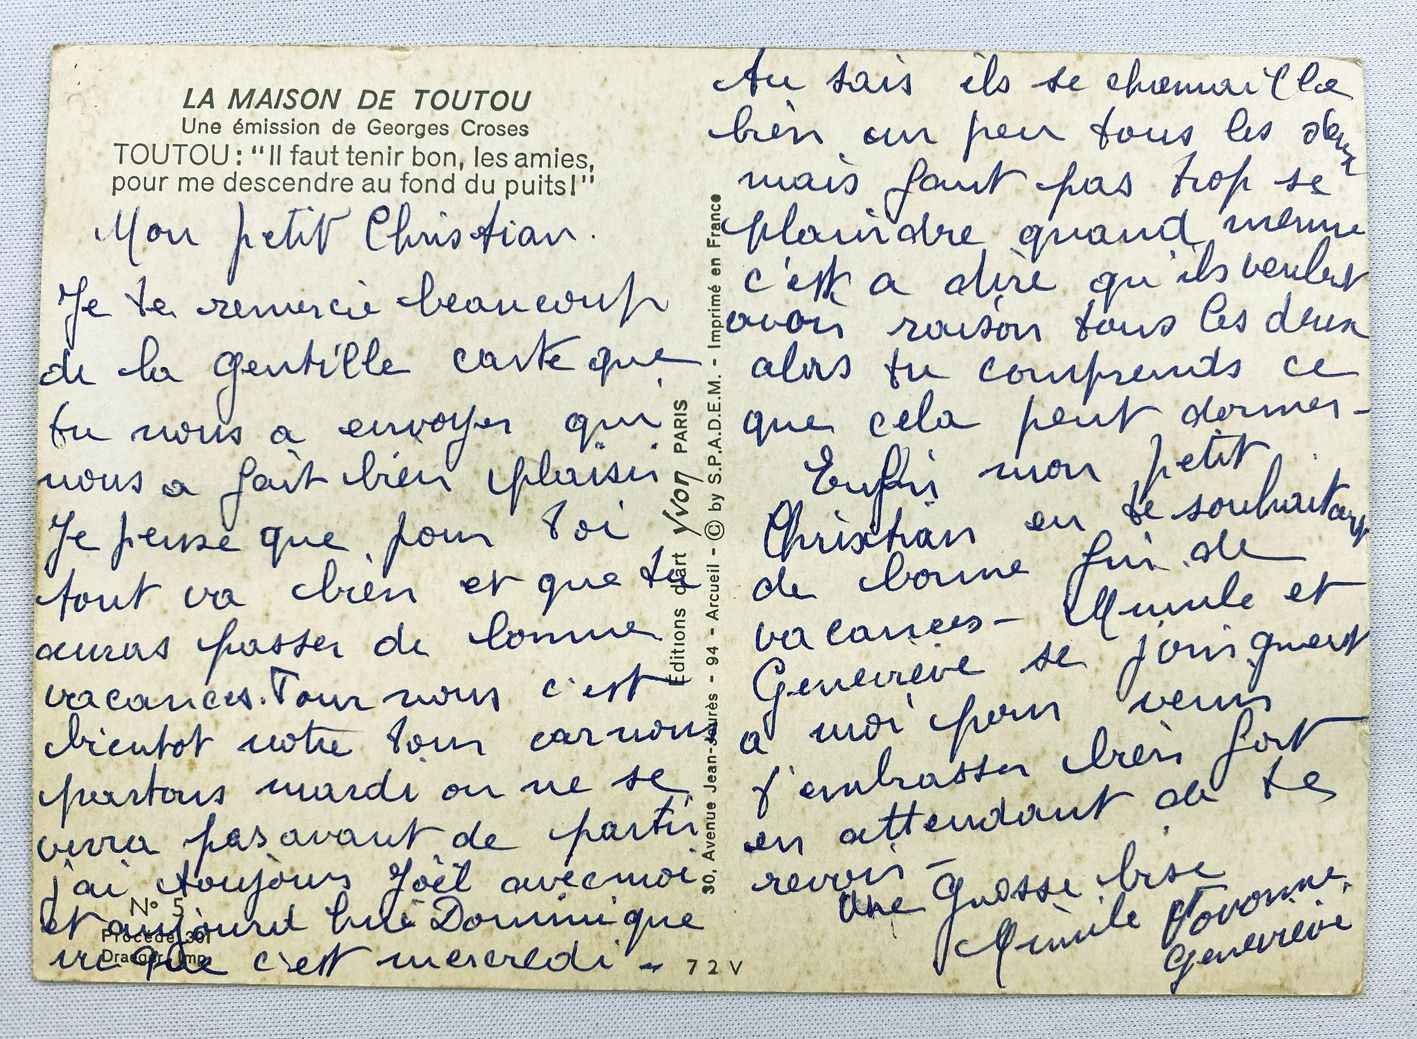 LA MAISON DE TOUTOU
Une émission de Georges Croses
TOUTOU : "Il faut tenir bon, les amies,
pour me descendre au fond du puits!"
Mon petit Christian.
Je te remercie beaucoup
de la gentille carte que
tu nous a envoyer qui
nous a fait bien plaisir
Je pense que pour toi
tout va bien et que tu
auras passer de bonne
vacances. Pour nous c'est
bientot notre tour car nous
partons mardi on ne se
verra pas avant de partir
j'ai toujours Joël avec moi
et aujourd hui Dominique
vu que c'est mercredi -
N° 5
Procédé 301
Draeger, Imp.
Editions d'art Yvon PARIS
30, Avenue Jean-Jaurès - 94 - Arcueil - © by S.P.A.D.E.M. - Imprimé en France
72V
tu sais ils se chamaille
bien un peu tous les deux
mais faut pas trop se
plaindre quand meme
c'est a dire qu'ils veulent
avoir raison tous les deux
alors tu comprends ce
que cela peut donner -
Enfin mon petit
Christian en te souhaitant
de bonne fin de
vacances - Mimile et
Geneviève se joignent
a moi pour venir
t'embrasser bien fort
en attendant de te
revoir -
Une Grosse bise
Mimile
Geneviève